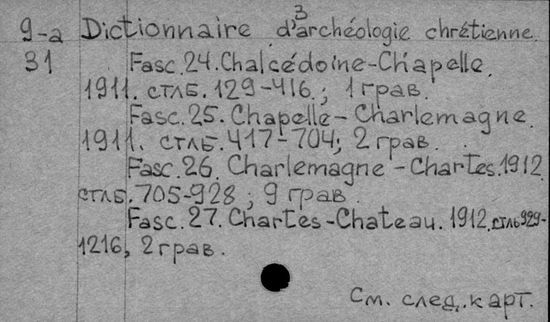 3
9-a Dictionnaire d'archéologie chrétienne
31 Fasc. 24. Chalcédoine-Chapelle.
1911. стлб. 129-416.; 1 грав.
Fasc. 25. Chapelle-Charlemagne
1911. стлб. 417-704; 2 грав.
Fasc. 26. Charlemagne-Chartes. 1912.
стлб. 705-928; 9 грав.
Fasc. 27. Chartes-Chateau. 1912. стлб 929-
1216, 2 грав.
См. след. карт.